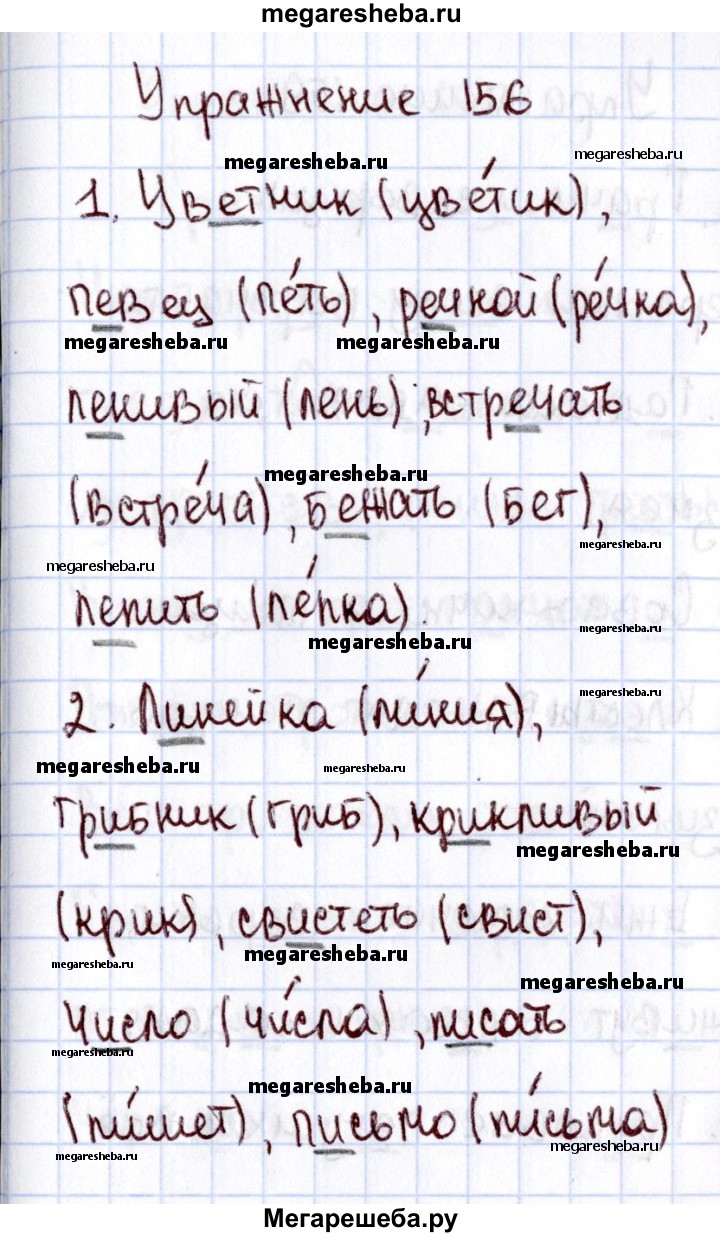 megaresheba.ru
Упражнение 156
megaresheba.ru
megaresheba.ru
1. Цветник (цве́тик),
певец (пе́ть), речной (ре́чка),
megaresheba.ru megaresheba.ru
ленивый (лень), встречать
megaresheba.ru
(встре́ча), бежать (бег),
megaresheba.ru
megaresheba.ru
лепить (ле́пка).
megaresheba.ru
megaresheba.ru
2. Линейка (ли́ния),
megaresheba.ru
megaresheba.ru
megaresheba.ru
грибник (гриб), крикливый
megaresheba.ru
(крик), свистеть (свист),
megaresheba.ru
megaresheba.ru
megaresheba.ru
Число (чи́сла), писать
megaresheba.ru
megaresheba.ru
(пи́шет), письмо (пи́сьма)
megaresheba.ru
megaresheba.ru
Мегарешеба.ру